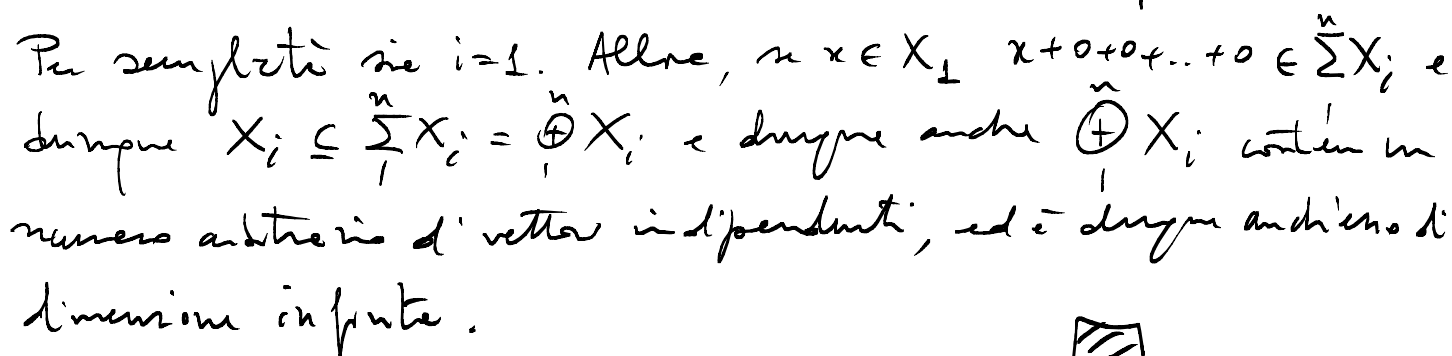 Per semplicità sia i=1. Allora, se x ∈ X₁ x+0+0+..+0 ∈ ⁿΣ₁ Xᵢ e
dunque Xᵢ ⊆ ⁿΣ₁ Xᵢ = ⁿ⊕₁ Xᵢ e dunque anche ⁿ⊕₁ Xᵢ contiene un
numero arbitrario di vettori indipendenti, ed è dunque anch'esso di
dimensione infinita.